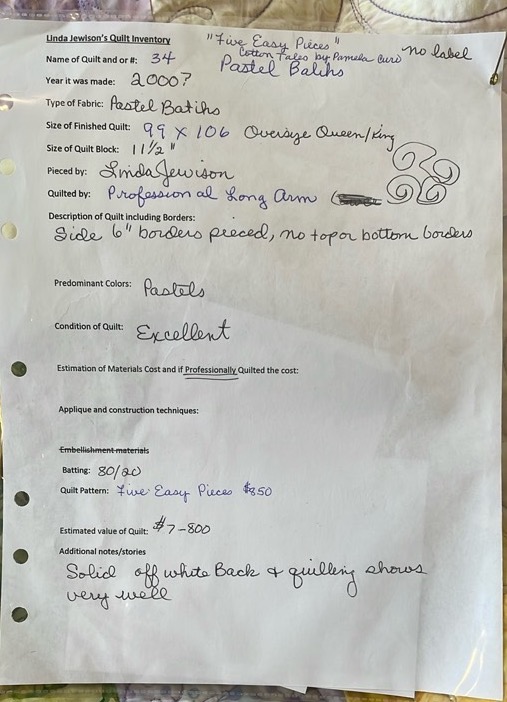 Linda Jewison's Quilt Inventory
"Five Easy Pieces"
Cotton Tales by Pamela
no label
Name of Quilt and or #: 34 Pastel Batihs
Year it was made: 2000?
Type of Fabric: Pastel Batihs
Size of Finished Quilt: 99 x 106 Oversize Queen/King
Size of Quilt Block: 11 1/2"
Pieced by: Linda Jewison
Quilted by: Professional Long Arm
Description of Quilt including Borders:
Side 6" borders pieced, no top or bottom borders
Predominant Colors: Pastels
Condition of Quilt: Excellent
Estimation of Materials Cost and if Professionally Quilted the cost:
Applique and construction techniques:
Embellishment materials
Batting: 80/20
Quilt Pattern: Five Easy Pieces $850
Estimated value of Quilt: $7-800
Additional notes/stories
Solid off white Back & quilting shows
very well